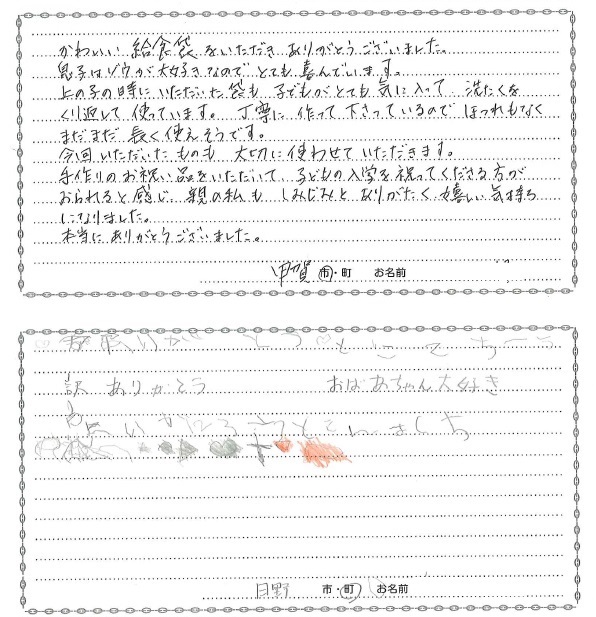 かわいい 給食袋をいただき ありがとうございました。
息子はゾウが大好きなので とても 喜んでいます。
上の子の時に いただいた袋も 子どもがとても 気に入って 洗たくを
くり返して 使っています。丁寧に 作って下さっているので ほつれもなく
まだまだ 長く使えそうです。
今回 いただいたものも 大切に使わせて いただきます。
手作りのお祝い品をいただいて 子どもの入学を祝ってくださる方が
おられると感じ 親の私も しみじみと ありがたく 嬉しい気持ち
になりました。
本当に ありがとうございました。
甲賀 市・町 お名前
訳 ありがとう おばあちゃん大好き
日野 市・町 お名前